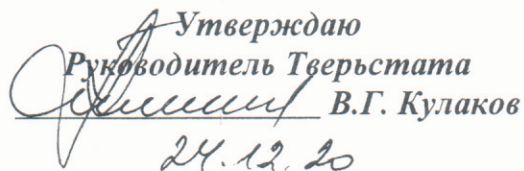 Утверждаю
Руководитель Тверьстата
В.Г. Кулаков
24.12.20